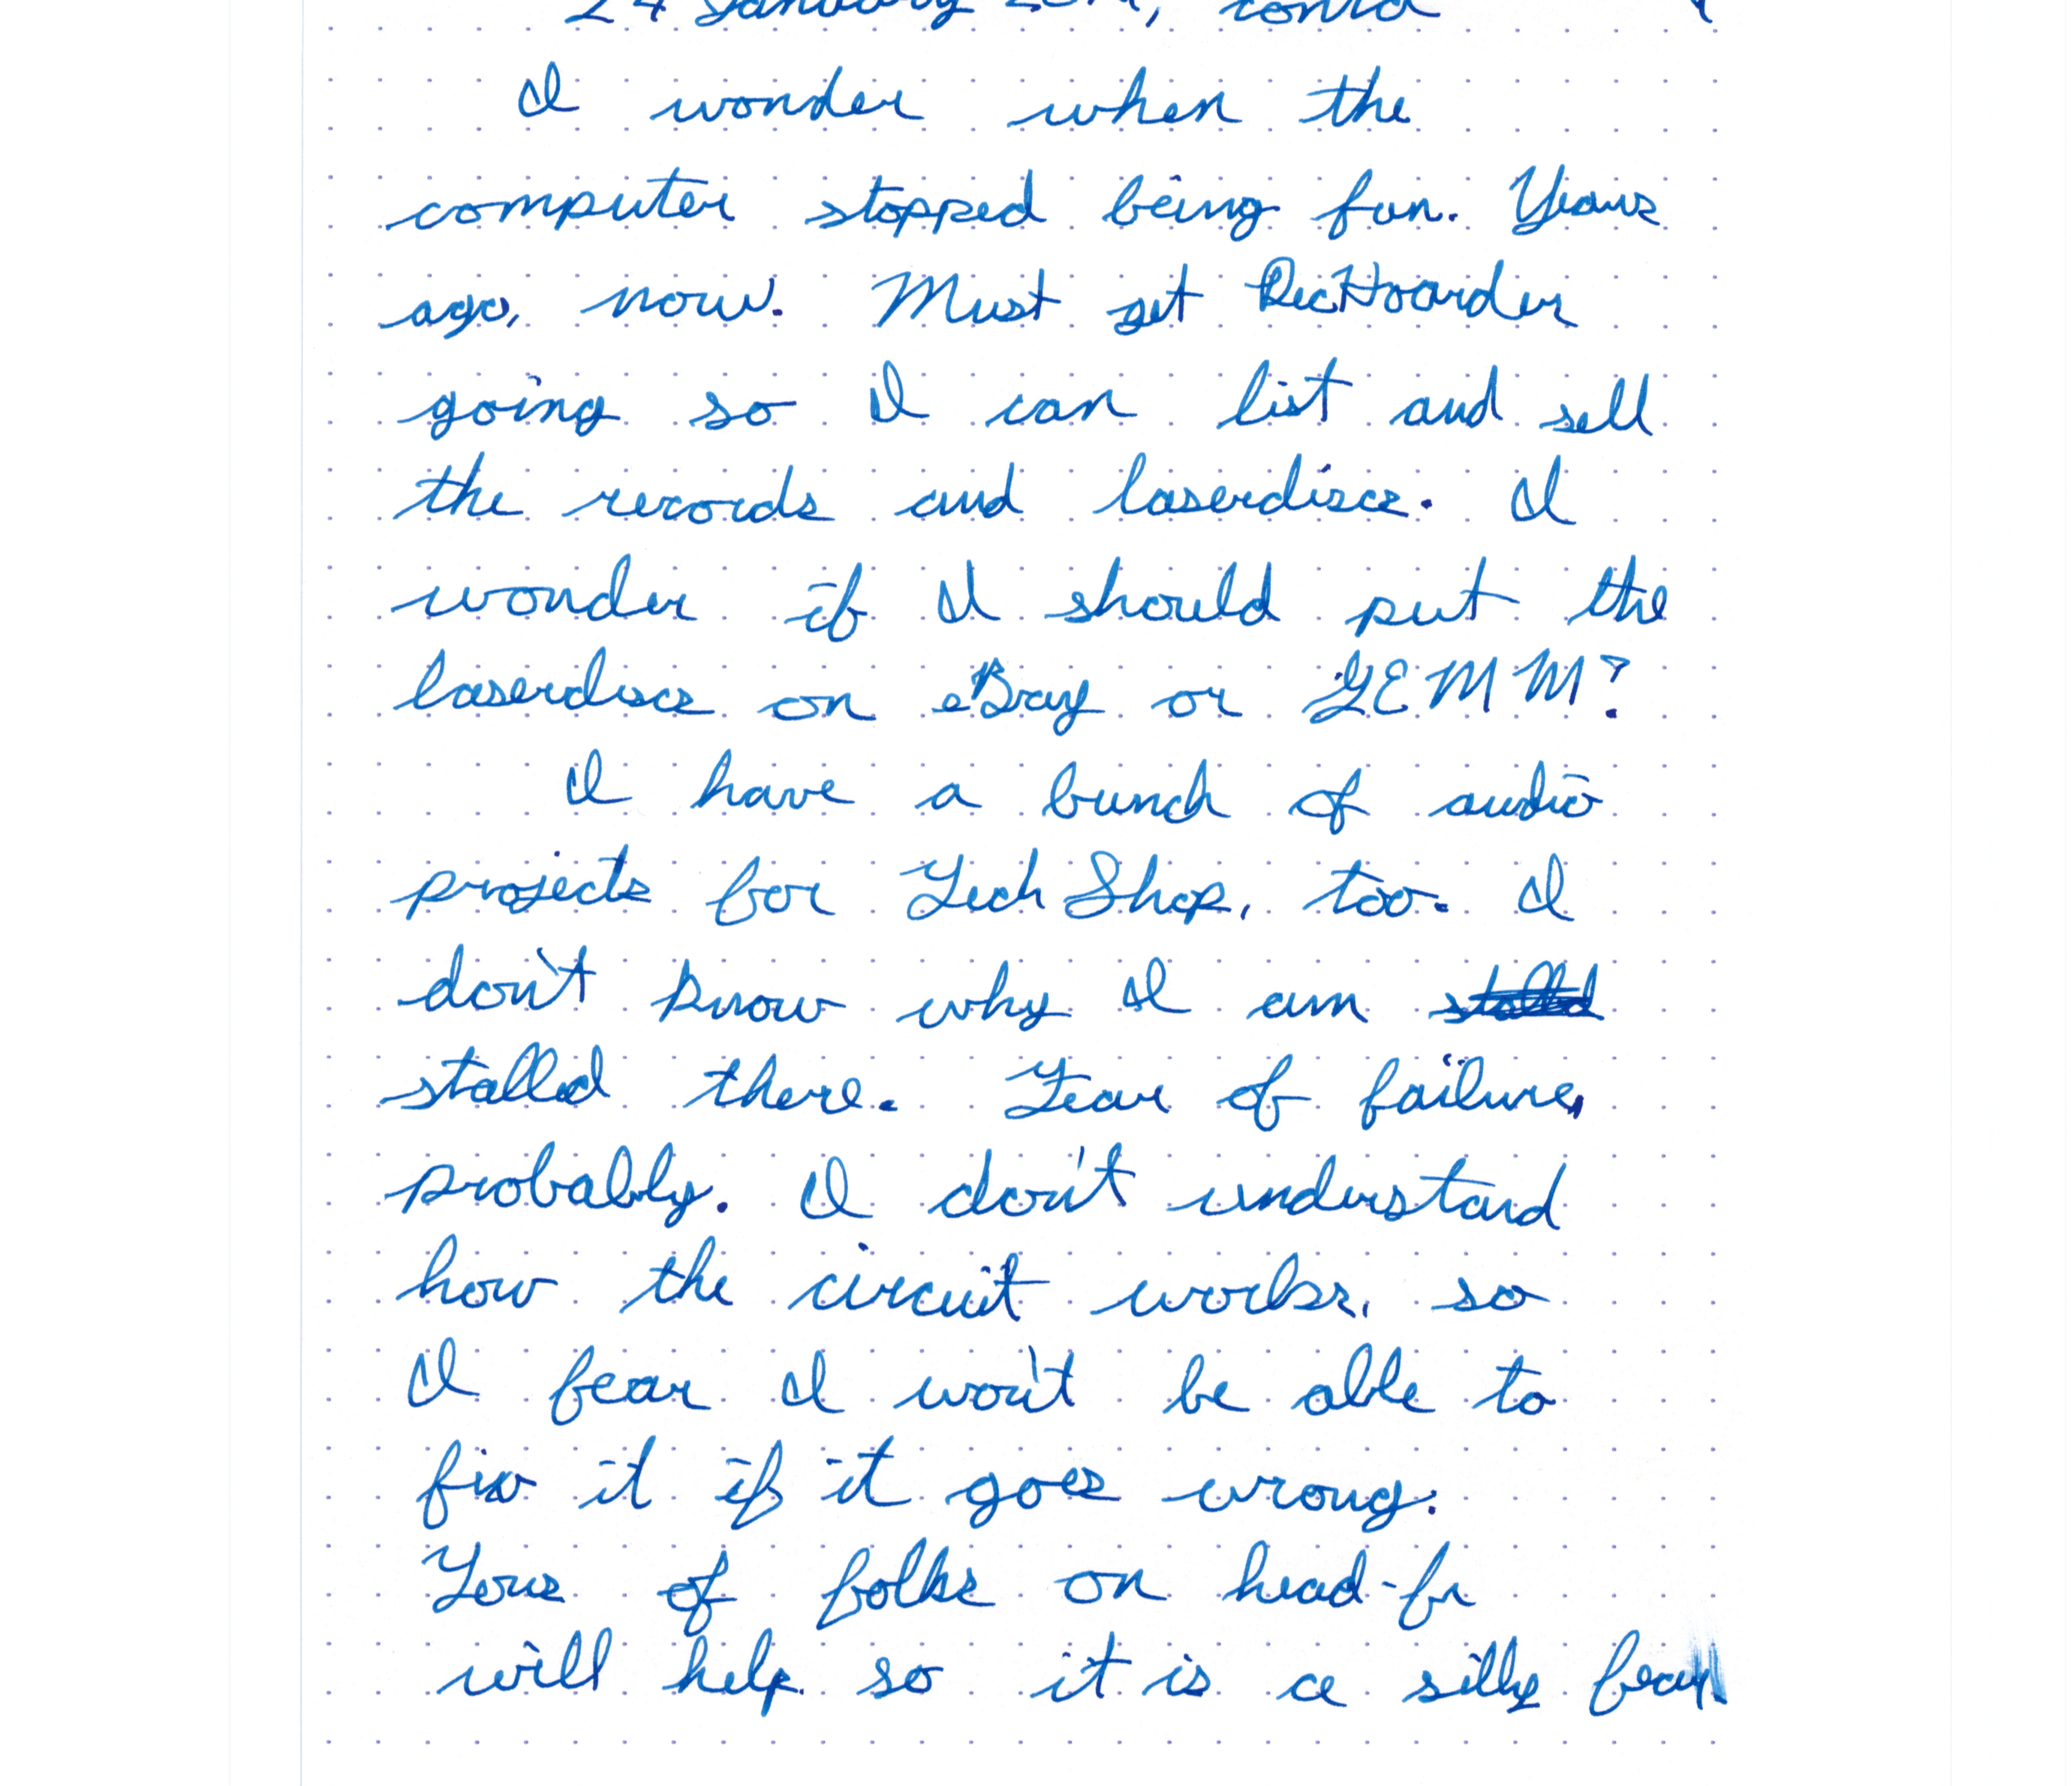 24 January contd
I wonder when the
computer stopped being fun. Years
ago, now. Must get RecHoarder
going so I can list and sell
the records and laserdiscs. I
wonder if I should put the
laserdiscs on eBay or GEMM?
I have a bunch of audio
projects for Tech Shop, too. I
don't know why I am stalled
stalled there. Fear of failure,
probably. I don't understand
how the circuit works, so
I fear I won't be able to
fix it if it goes wrong.
Tons of folks on head-fi
will help, so it is a silly fear